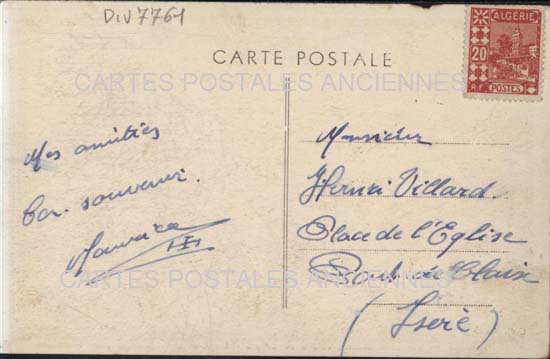 DIV7761
CARTE POSTALE
ALGERIE
20
R.F. POSTES
CARTES POSTALES ANCIENNES
Mes amitiés
souvenir.
Maurice
Monsieur
Henri Villard
Place de l'Eglise
Pont de Claix
(Isère)
CARTES POSTALES ANCIENNES